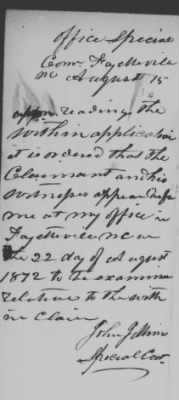 Office Special
Com. Fayetteville
NC August 15
upon reading the
within application
it is ordered that the
Claimant and his
witnesses appear before
me at my office in
Fayetteville NC on
the 22 day of August
1872 to be examine
relative to the with
in Claim
John
Special Com.